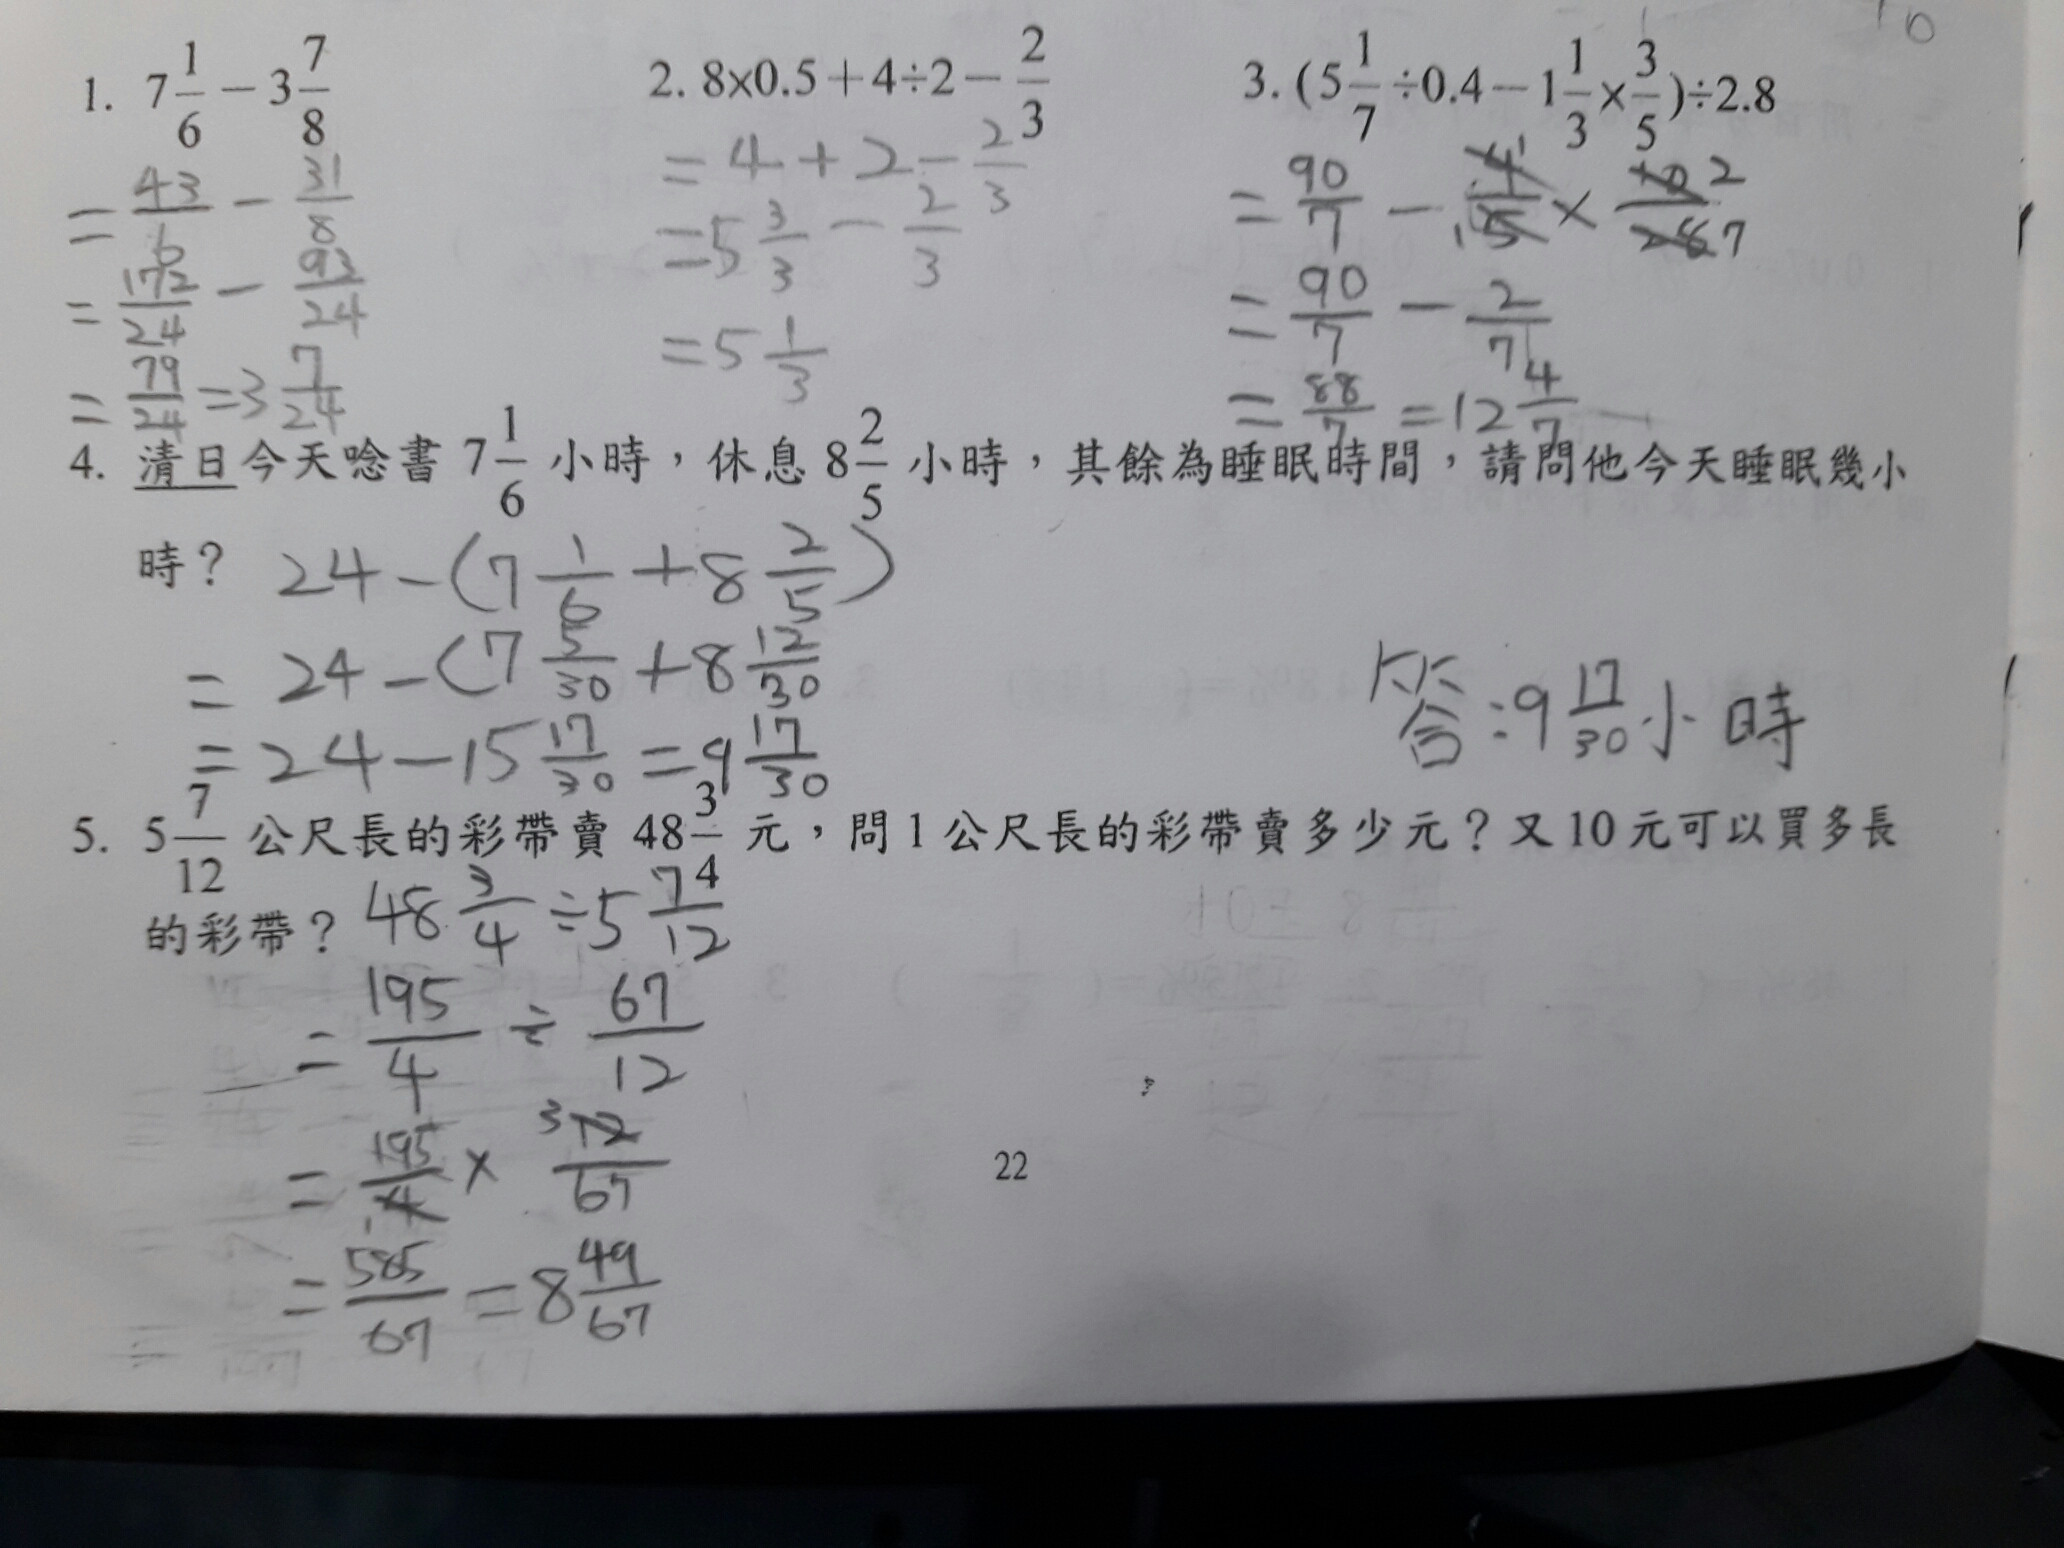 1. 7 1/6 − 3 7/8
= 43/6 − 31/8
= 172/24 − 93/24
= 79/24 = 3 7/24
2. 8×0.5＋4÷2− 2/3
= 4 + 2 − 2/3
= 5 3/3 − 2/3
= 5 1/3
3. (5 1/7 ÷0.4−1 1/3 × 3/5)÷2.8
= 90/7 − 4/5 × 10/28
1 1 2 7
= 90/7 − 2/7
= 88/7 = 12 4/7
4. 清日今天唸書 7 1/6 小時，休息 8 2/5 小時，其餘為睡眠時間，請問他今天睡眠幾小
時？
24 − (7 1/6 + 8 2/5)
= 24 − (7 5/30 + 8 12/30
= 24 − 15 17/30 = 9 17/30
答：9 17/30 小時
5. 5 7/12 公尺長的彩帶賣 48 3/4 元，問 1 公尺長的彩帶賣多少元？又 10 元可以買多長
的彩帶？
48 3/4 ÷ 5 7/12
= 195/4 ÷ 67/12
= 195/4 × 12/67
1 3
= 585/67 = 8 49/67
22